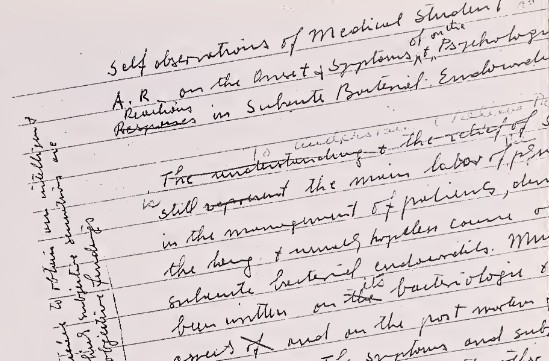 Self observations of Medical Student
A. R. on the Onset & Symptoms of on the & Psychologi
Reactions
Responses in Subacute Bacterial Endocardi
To understand
The understanding & the relief of S
is still represent the main labor of
in the management of patients,
the long & usually hopeless course o
subacute bacterial endocarditis. Mu
been written on the its bacteriologic &
aspects of and on the post mortem
The symptoms and sub
to obtain an intelligent
subjective sensations are
objective findings